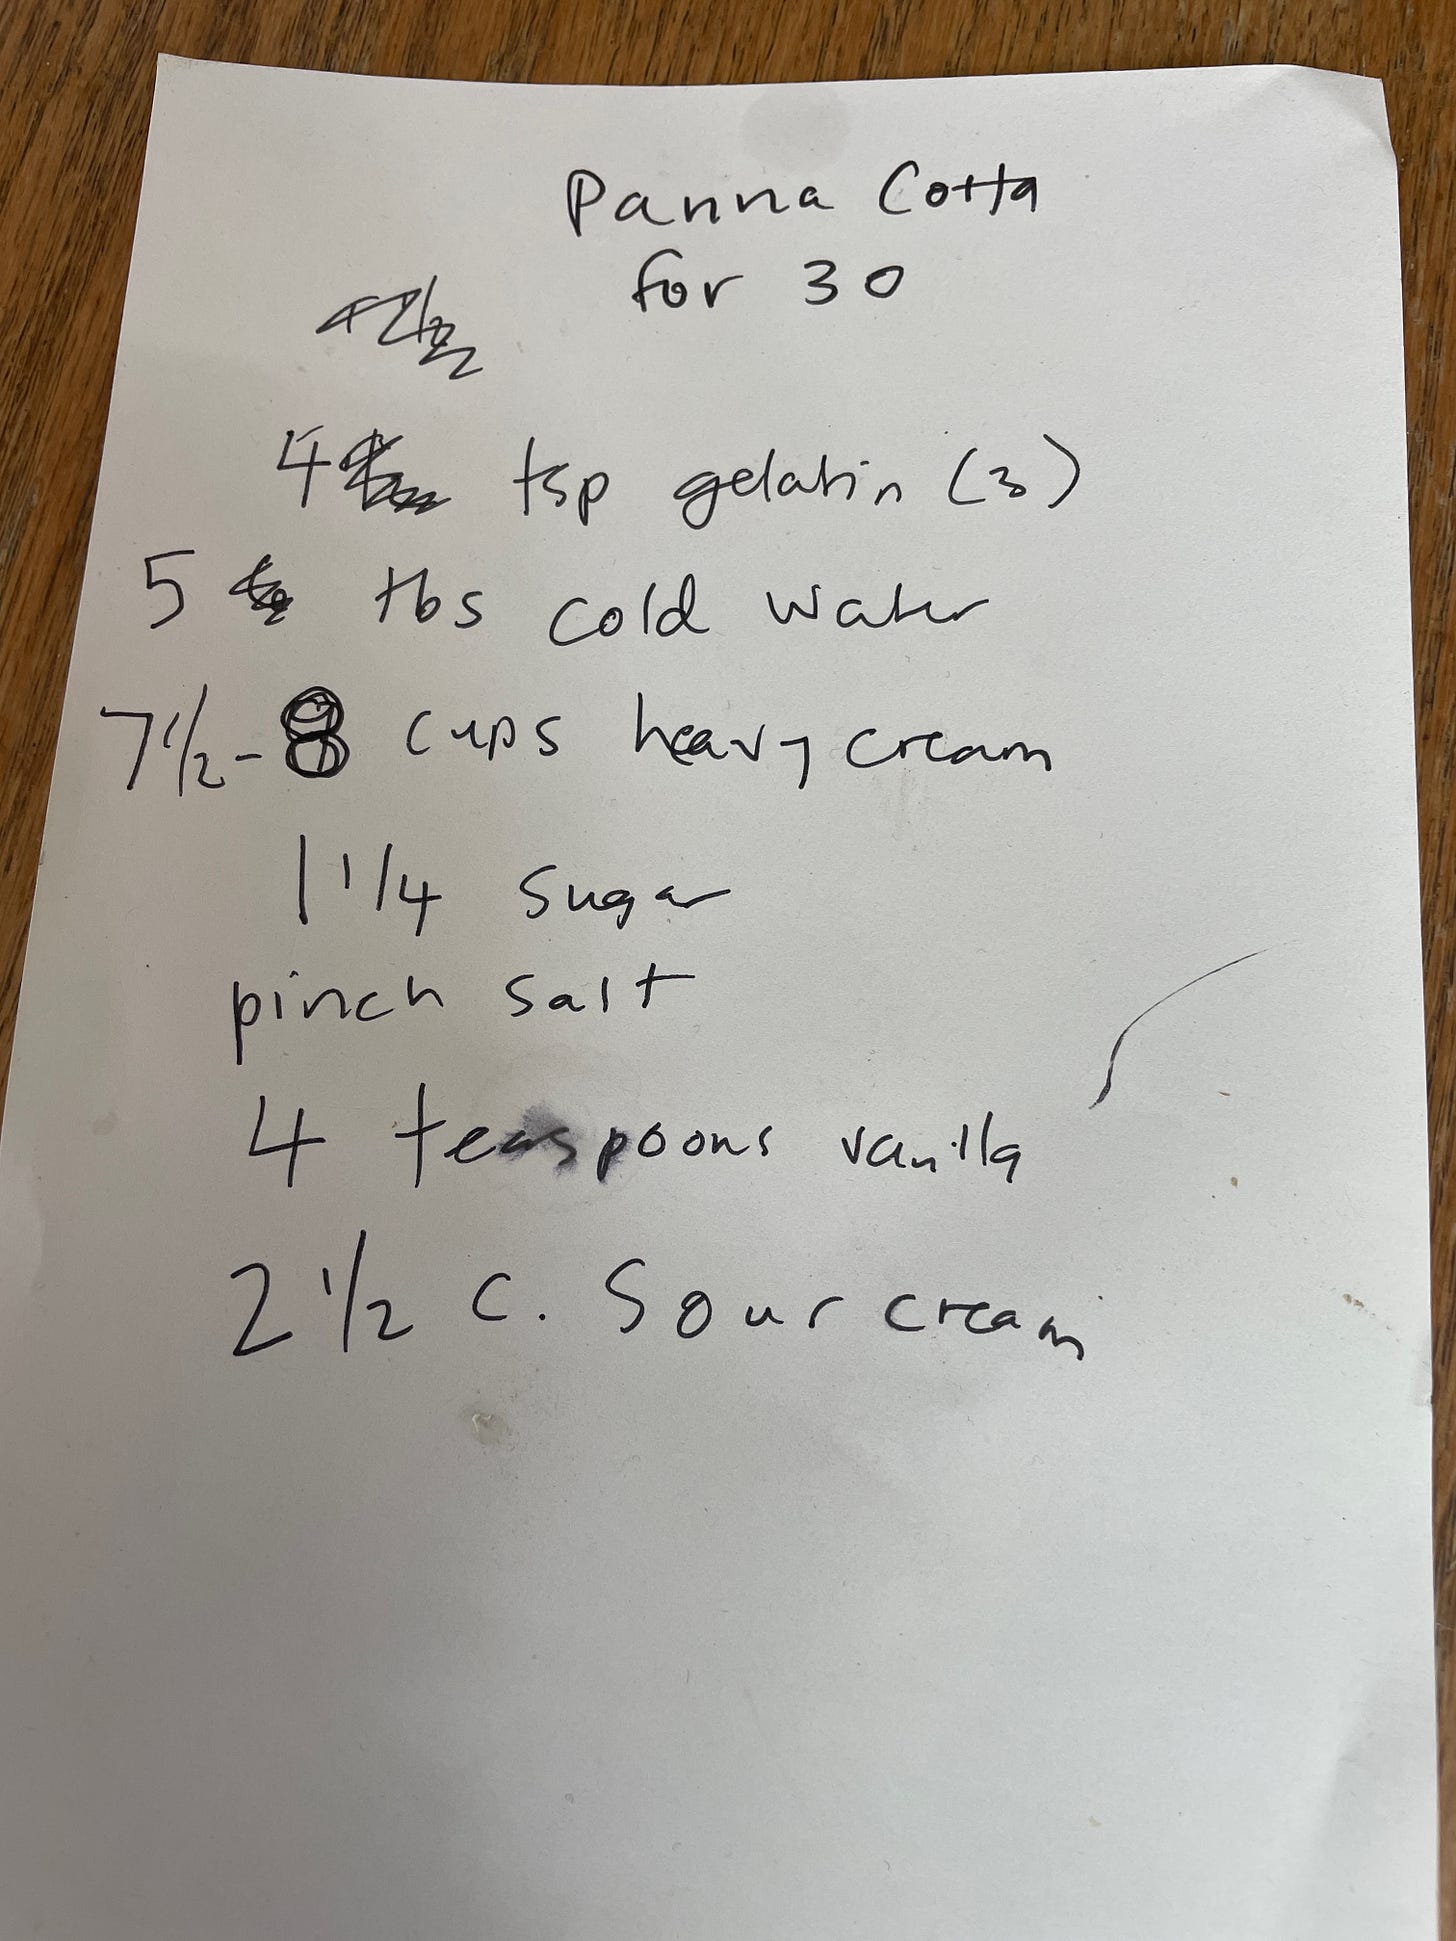 Panna Cotta
for 30
4 tsp gelatin (3)
5 tbs cold water
7 1/2 - 8 cups heavy cream
1 1/4 sugar
pinch salt
4 teaspoons vanilla
2 1/2 c. Sour cream